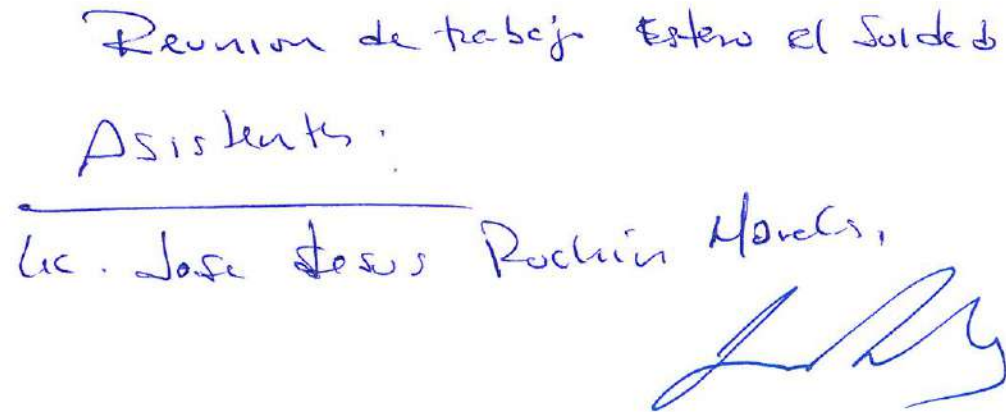 Reunion de trabajo Estero el Soldado
Asistentes.
Lic. Jose Jesus Rochin Morales.